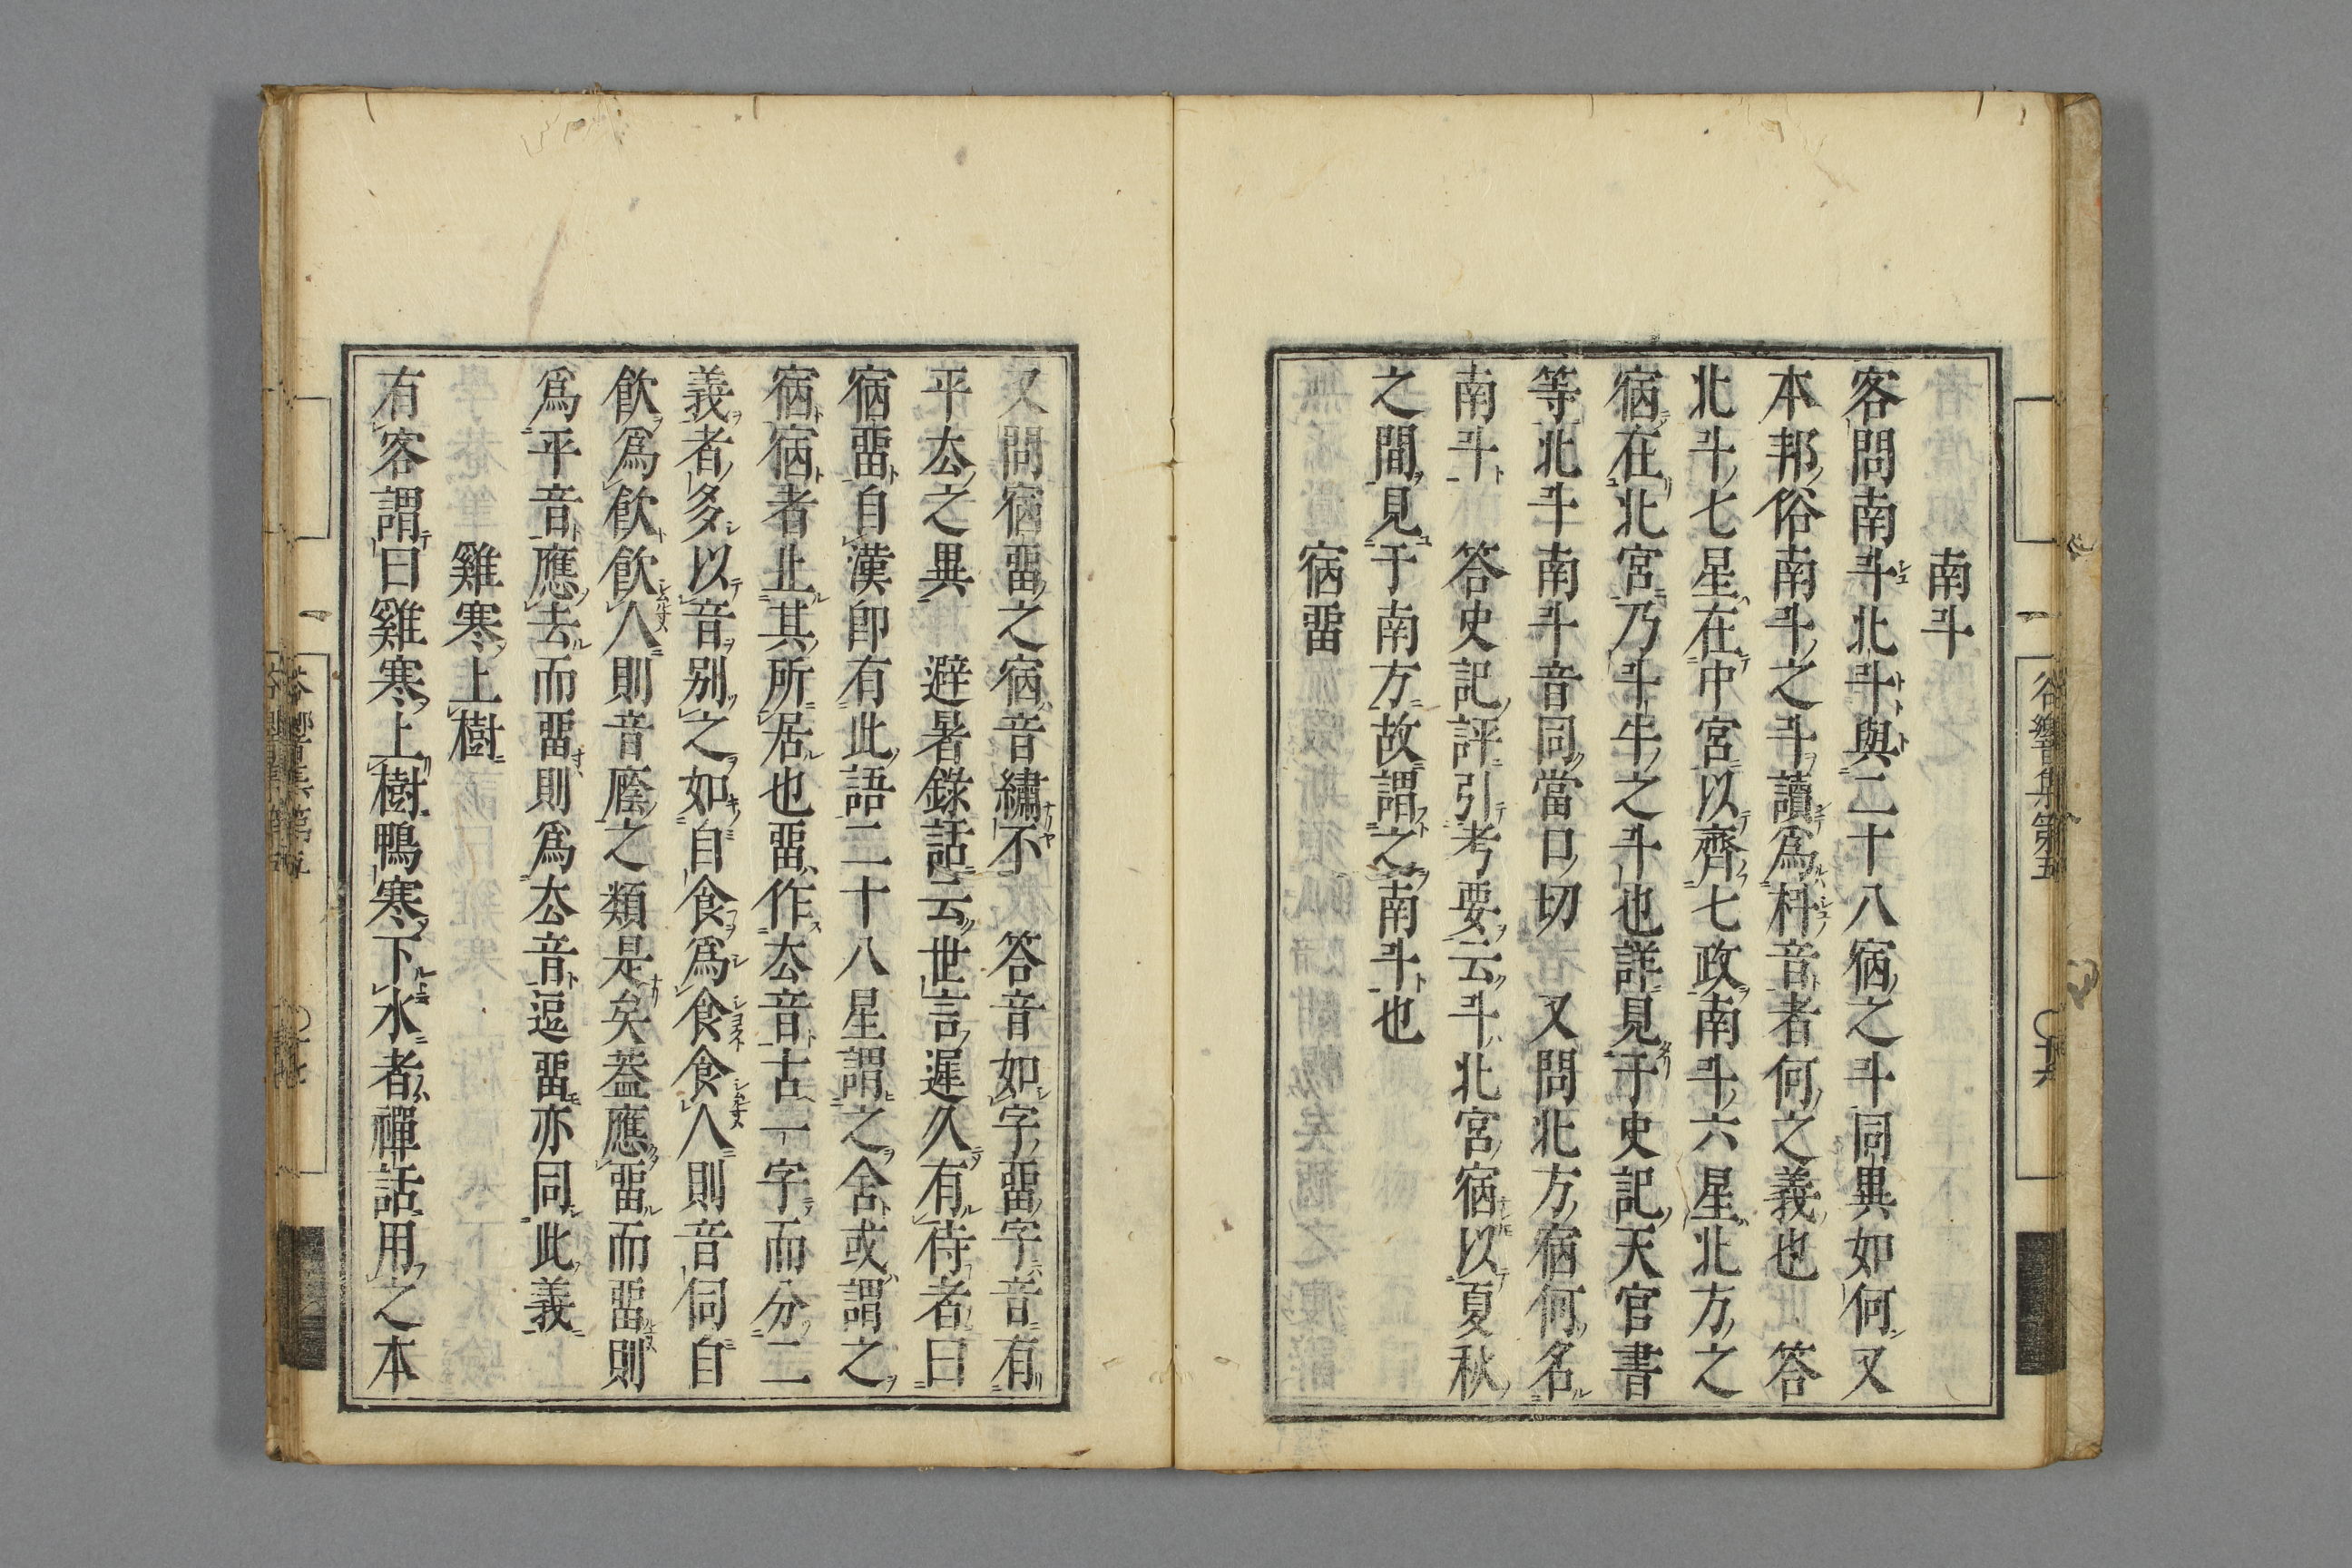 南斗
客問南斗北斗與二十八宿之斗同異如何又
本邦俗南斗之斗讀爲枓音者何之義也　答
北斗七星在中宮以齊七政南斗六星北方之
宿在北宮乃斗牛之斗也詳見于史記天官書
等北斗南斗音同當口切　又問北方宿何名
南斗　答史記評引考要云斗北宮宿以夏秋
之間見于南方故謂之南斗也
宿畱
又問宿畱之宿音繡不　答音如字畱字音有
平去之異　避暑錄話云世言遲久有待者曰
宿畱自漢卽有此語二十八星謂之舍或謂之
宿宿者止其所居也畱作去音古一字而分二
義者多以音別之如自食爲食食人則音伺自
飮爲飮飮人則音廕之類是矣葢應畱而畱則
爲平音應去而畱則爲去音逗畱亦同此義
雞寒上樹
有客謂曰雞寒上樹鴨寒下水者禪話用之本
谷響集第五
谷響集第五